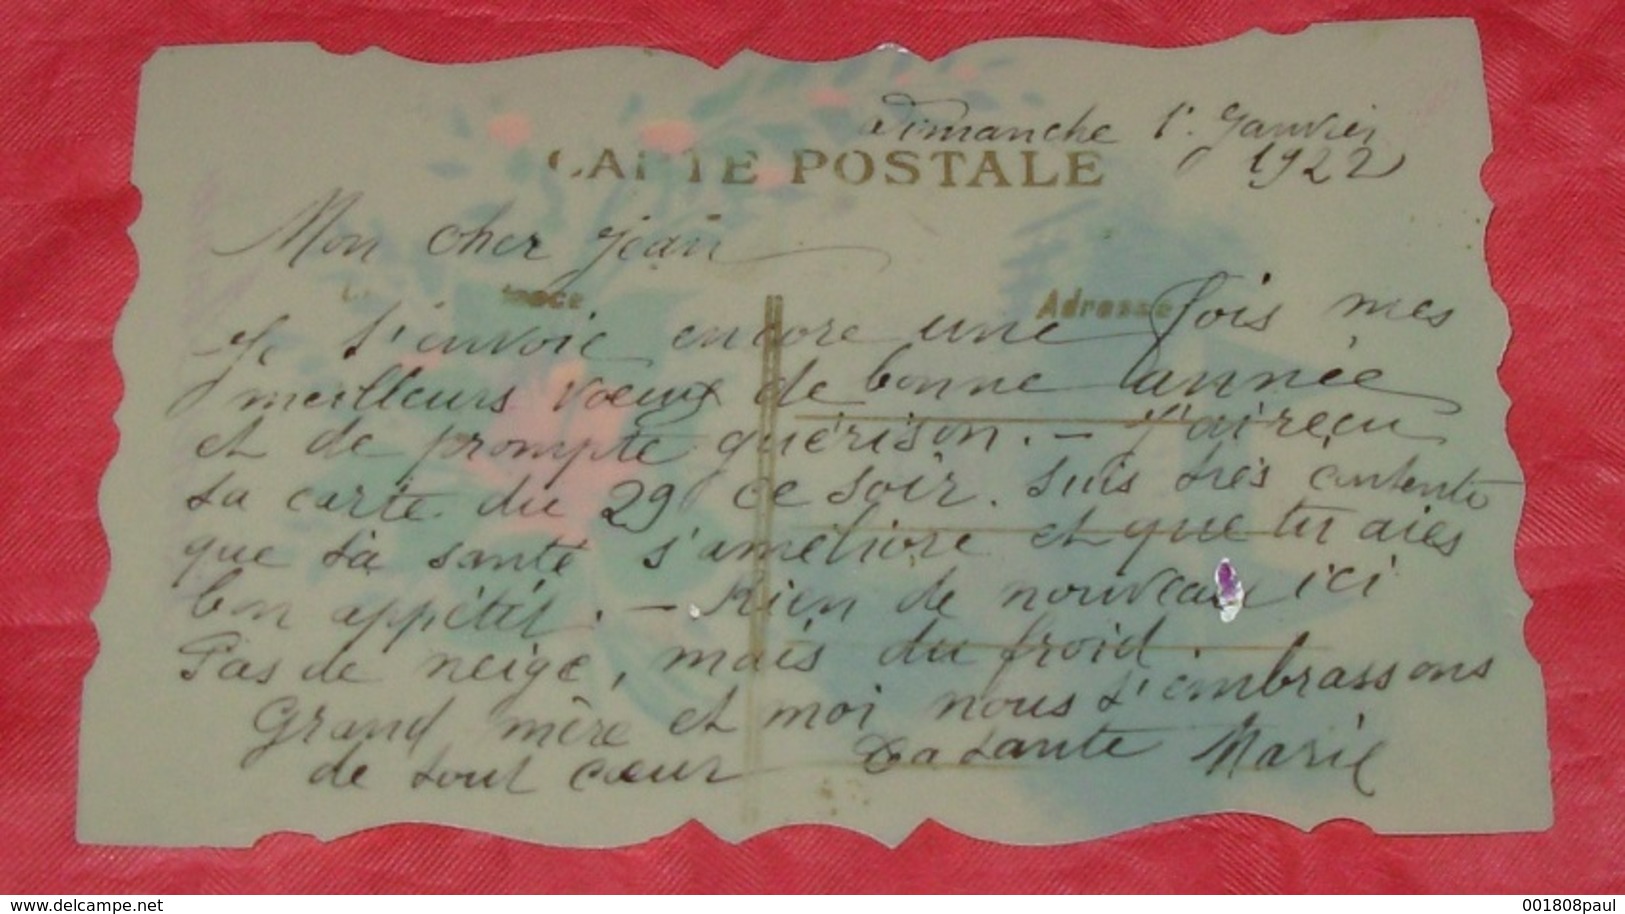 Dimanche 1r Janvier
1922
CARTE POSTALE
Mon cher Jean
Adresse
Je t'envoie encore une fois mes
meilleurs voeux de bonne année
et de prompte guérison. – J'ai reçu
ta carte du 29 ce soir. Suis très contente
que ta santé s'améliore et que tu aies
bon appétit. – Rien de nouveau ici
Pas de neige, mais du froid.
Grand mère et moi nous t'embrassons
de tout cœur Ta tante Marie
delcampe.net
001808paul